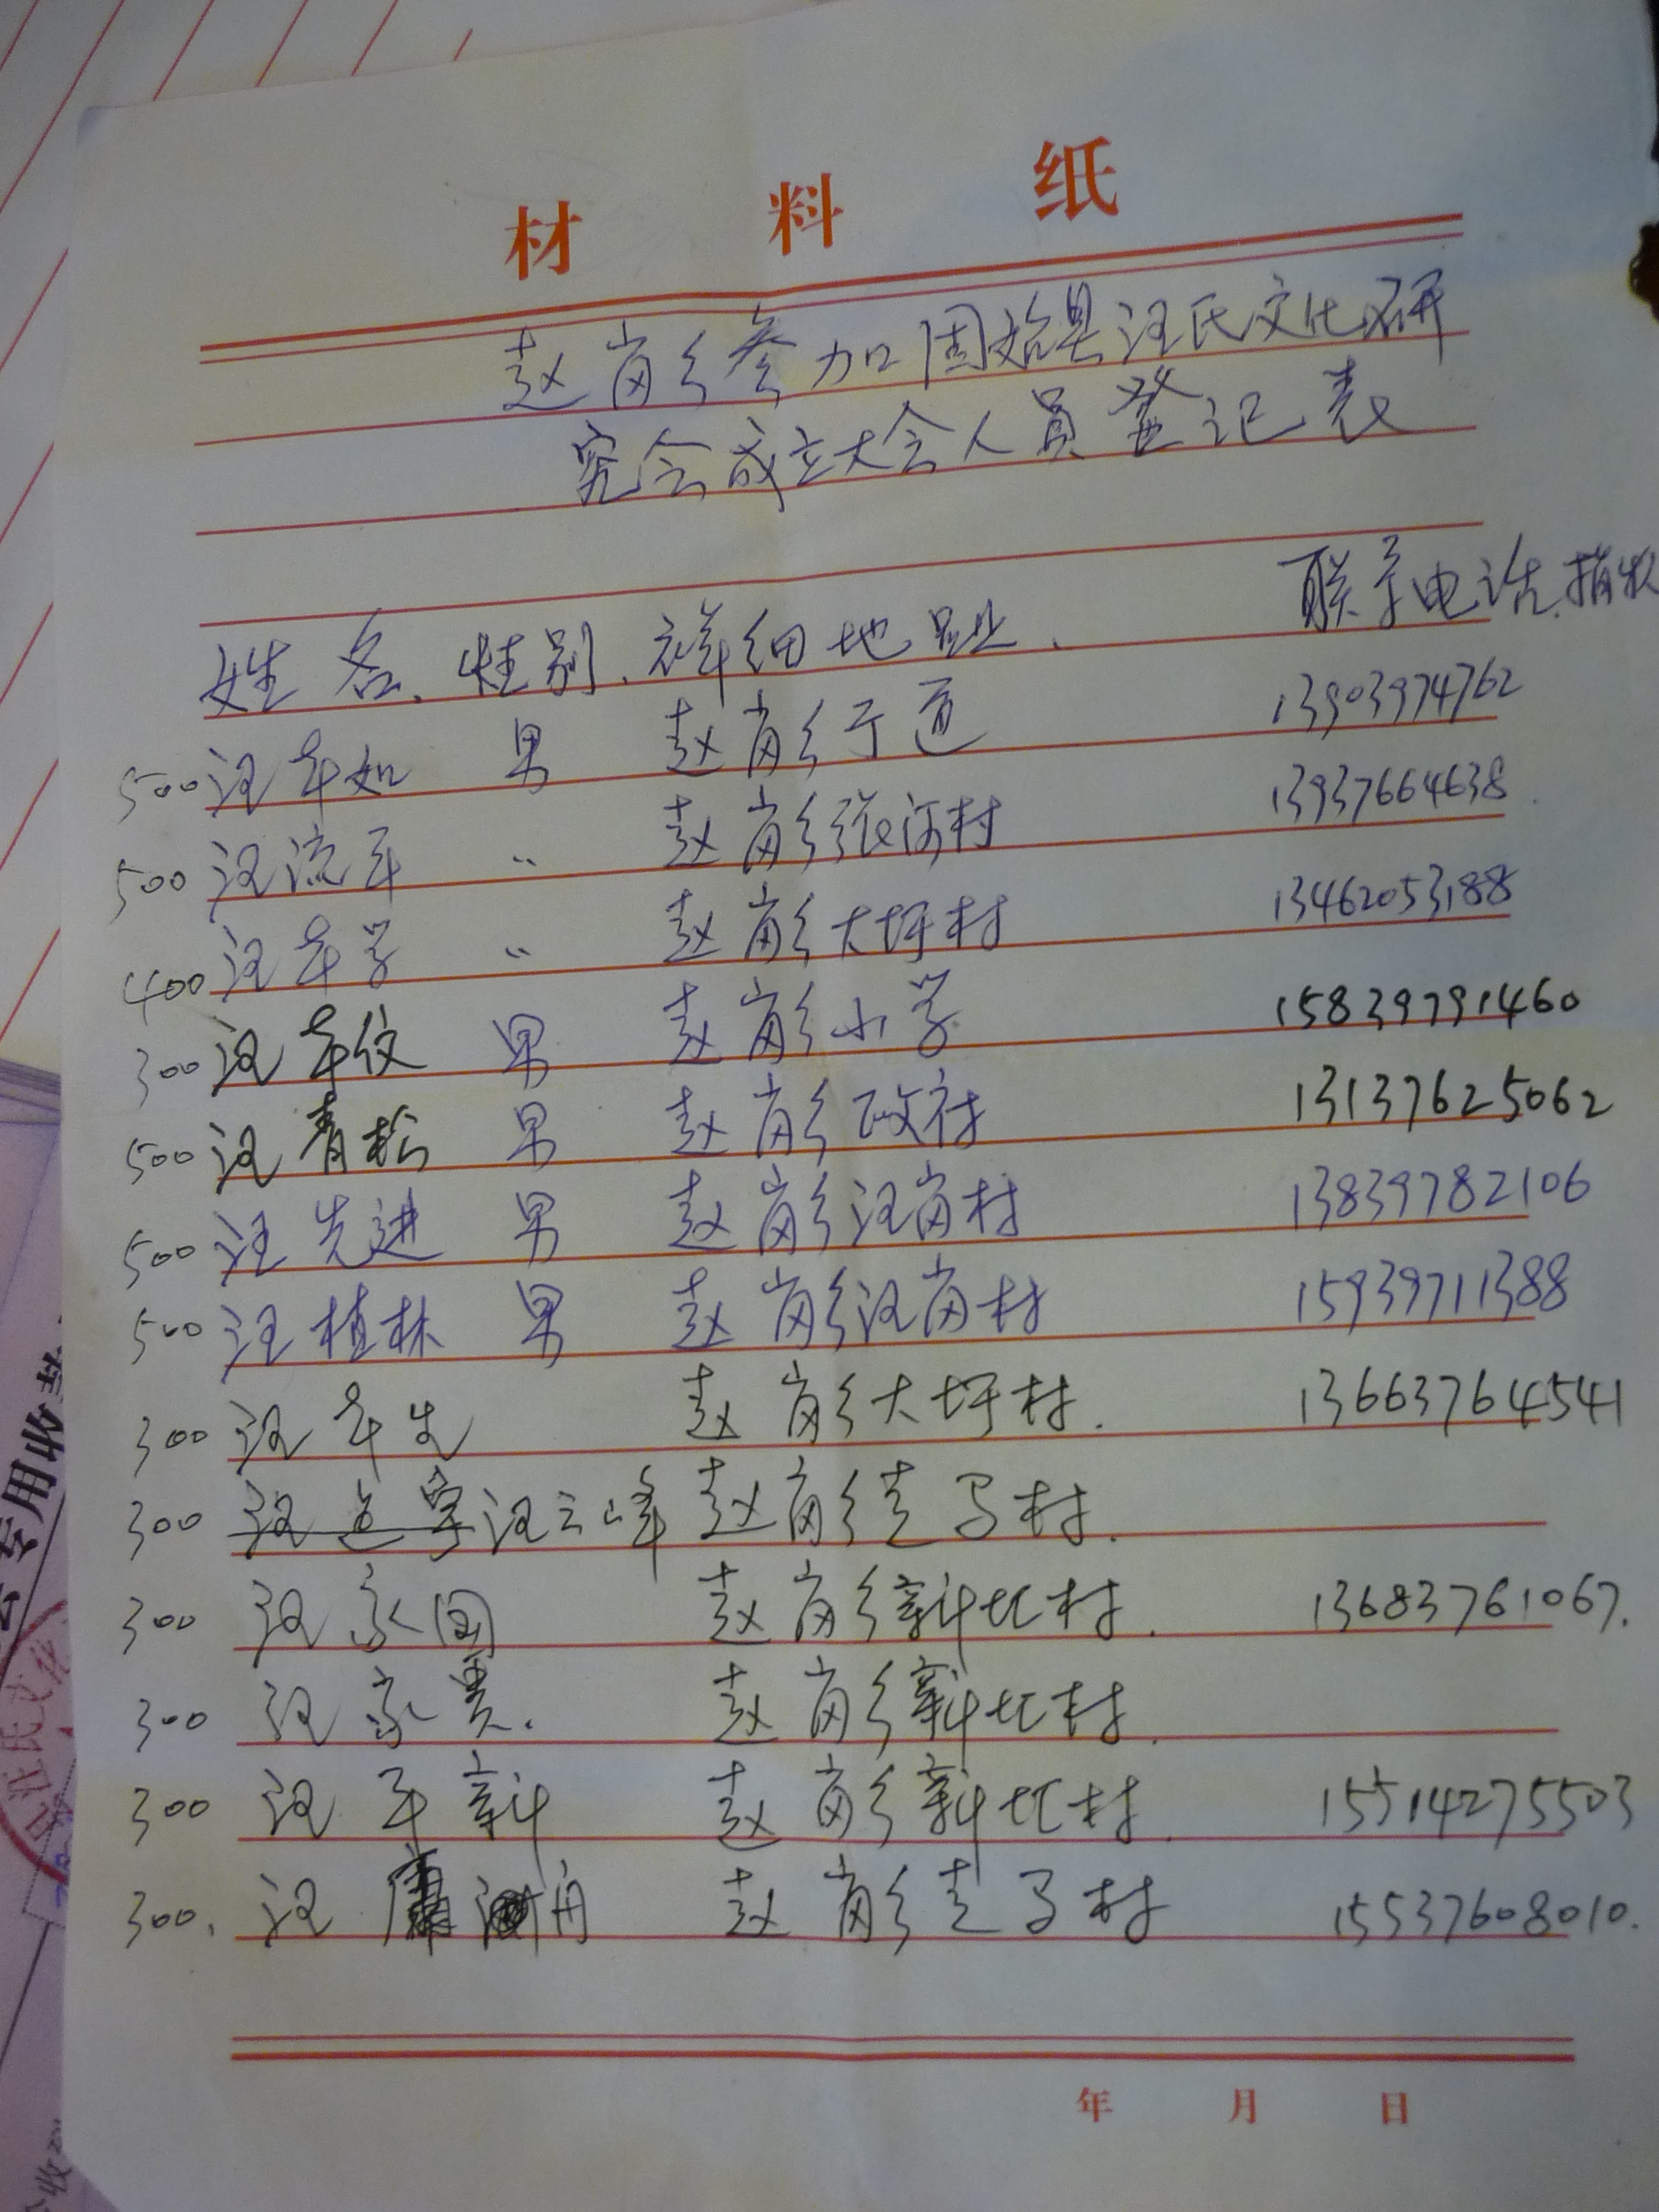 材料纸
赵岗乡参加固始县汪氏文化研
究会成立大会人员登记表
姓名、性别、详细地址、联系电话、捐款
500 汪年如 男 赵岗乡于道 13903974762
500 汪流平 〃 赵岗乡张河村 13937664638
400 汪年学 〃 赵岗乡大坪村 13462053188
300 汪年仪 男 赵岗乡小学 15839791460
500 汪青松 男 赵岗乡政府 13137625062
500 汪先进 男 赵岗乡汪岗村 13839782106
500 汪植林 男 赵岗乡汪岗村 15939711388
300 汪年生 赵岗乡大坪村. 13663764541
300 汪云峰 赵岗乡走马村.
300 汪家国 赵岗乡新北村. 13683761067.
300 汪家贵. 赵岗乡新北村.
300 汪平新 赵岗乡新北村. 15514275503
300. 汪 舟 赵岗乡走马村 15537608010.
年 月 日
专用收
汪氏文化